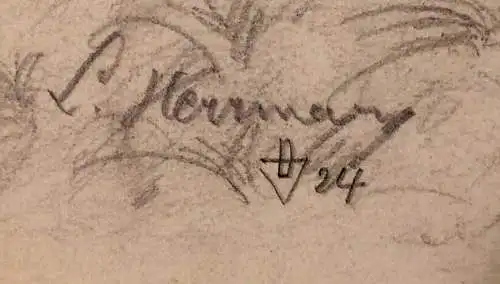 L. Herrmann
24